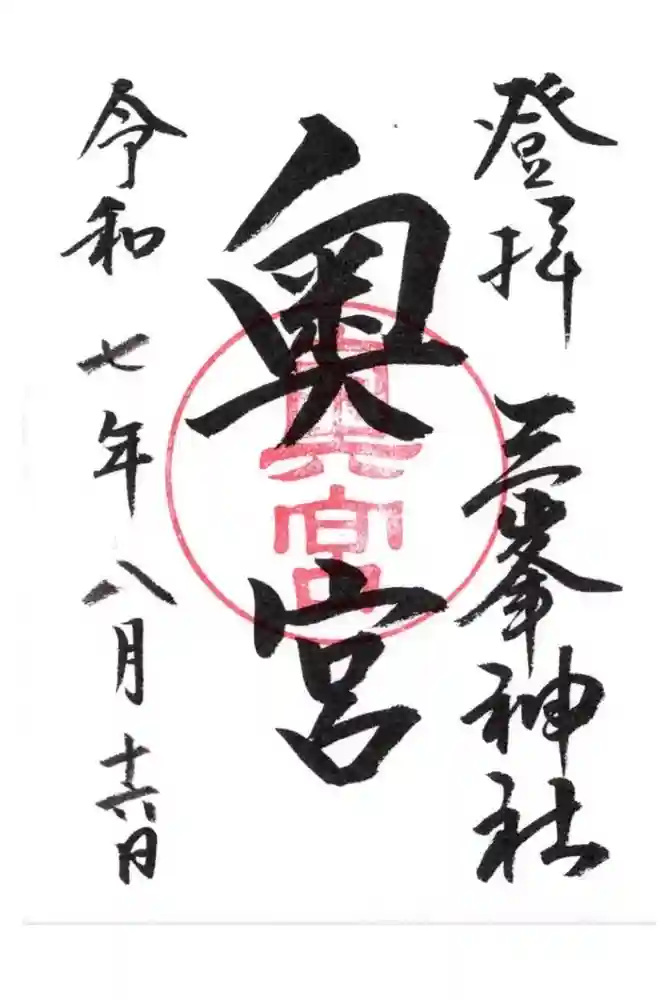 登拝 三峯神社
奥宮
令和七年八月十六日